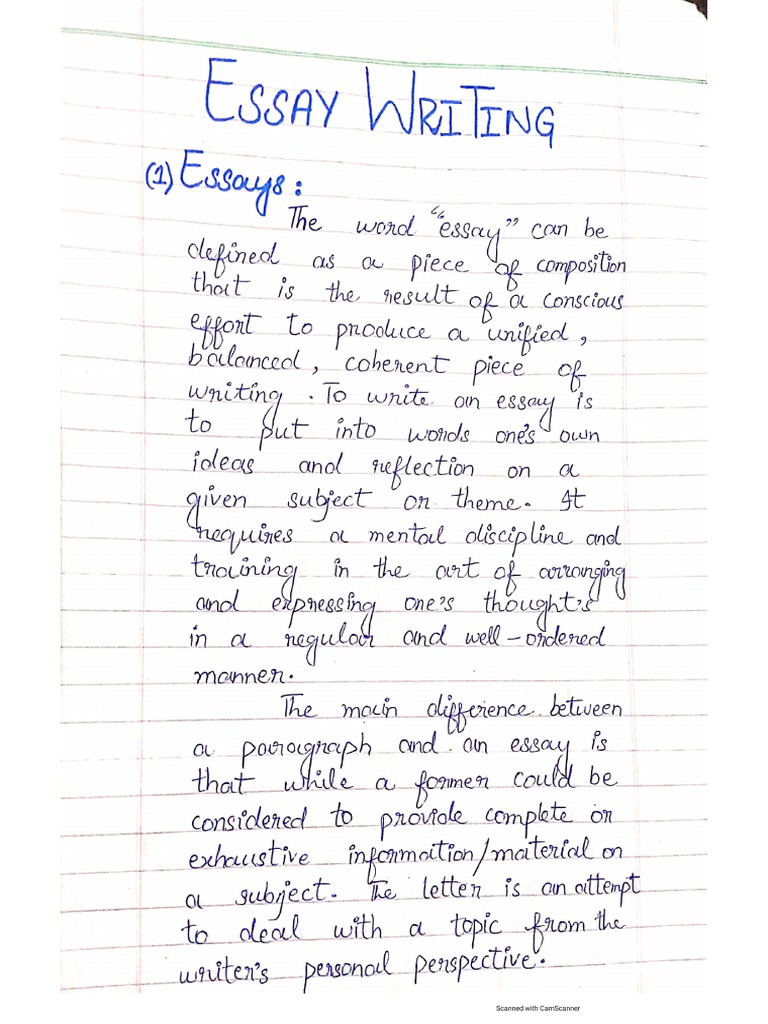 ESSAY WRITING
(1) Essays:
The word "essay" can be
defined as a piece of composition
that is the result of a conscious
effort to produce a unified,
balanced, coherent piece of
writing. To write an essay is
to put into words one's own
ideas and reflection on a
given subject or theme. It
requires a mental discipline and
training in the art of arranging
and expressing one's thought's
in a regular and well-ordered
manner.
The main difference between
a paragraph and an essay is
that while a former could be
considered to provide complete or
exhaustive information/material on
a subject. The letter is an attempt
to deal with a topic from the
writer's personal perspective.
Scanned with CamScanner